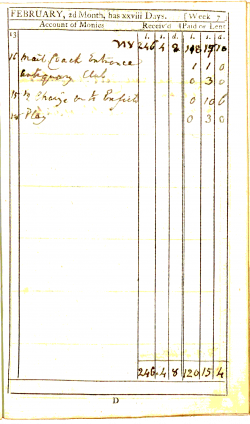 FEBRUARY, 2d Month, has xxviii Days. [Week 7.
Account of Monies Receiv'd Paid or Lent
l. s. d. l. s. d.
13 246 4 8 118 15 10
16 Mail Coach Entrance 1 1 0
Antiquary Club 0 3 0
15 Chaize 0 10 6
14 Play 0 3 0
246 4 8 120 15 4
D